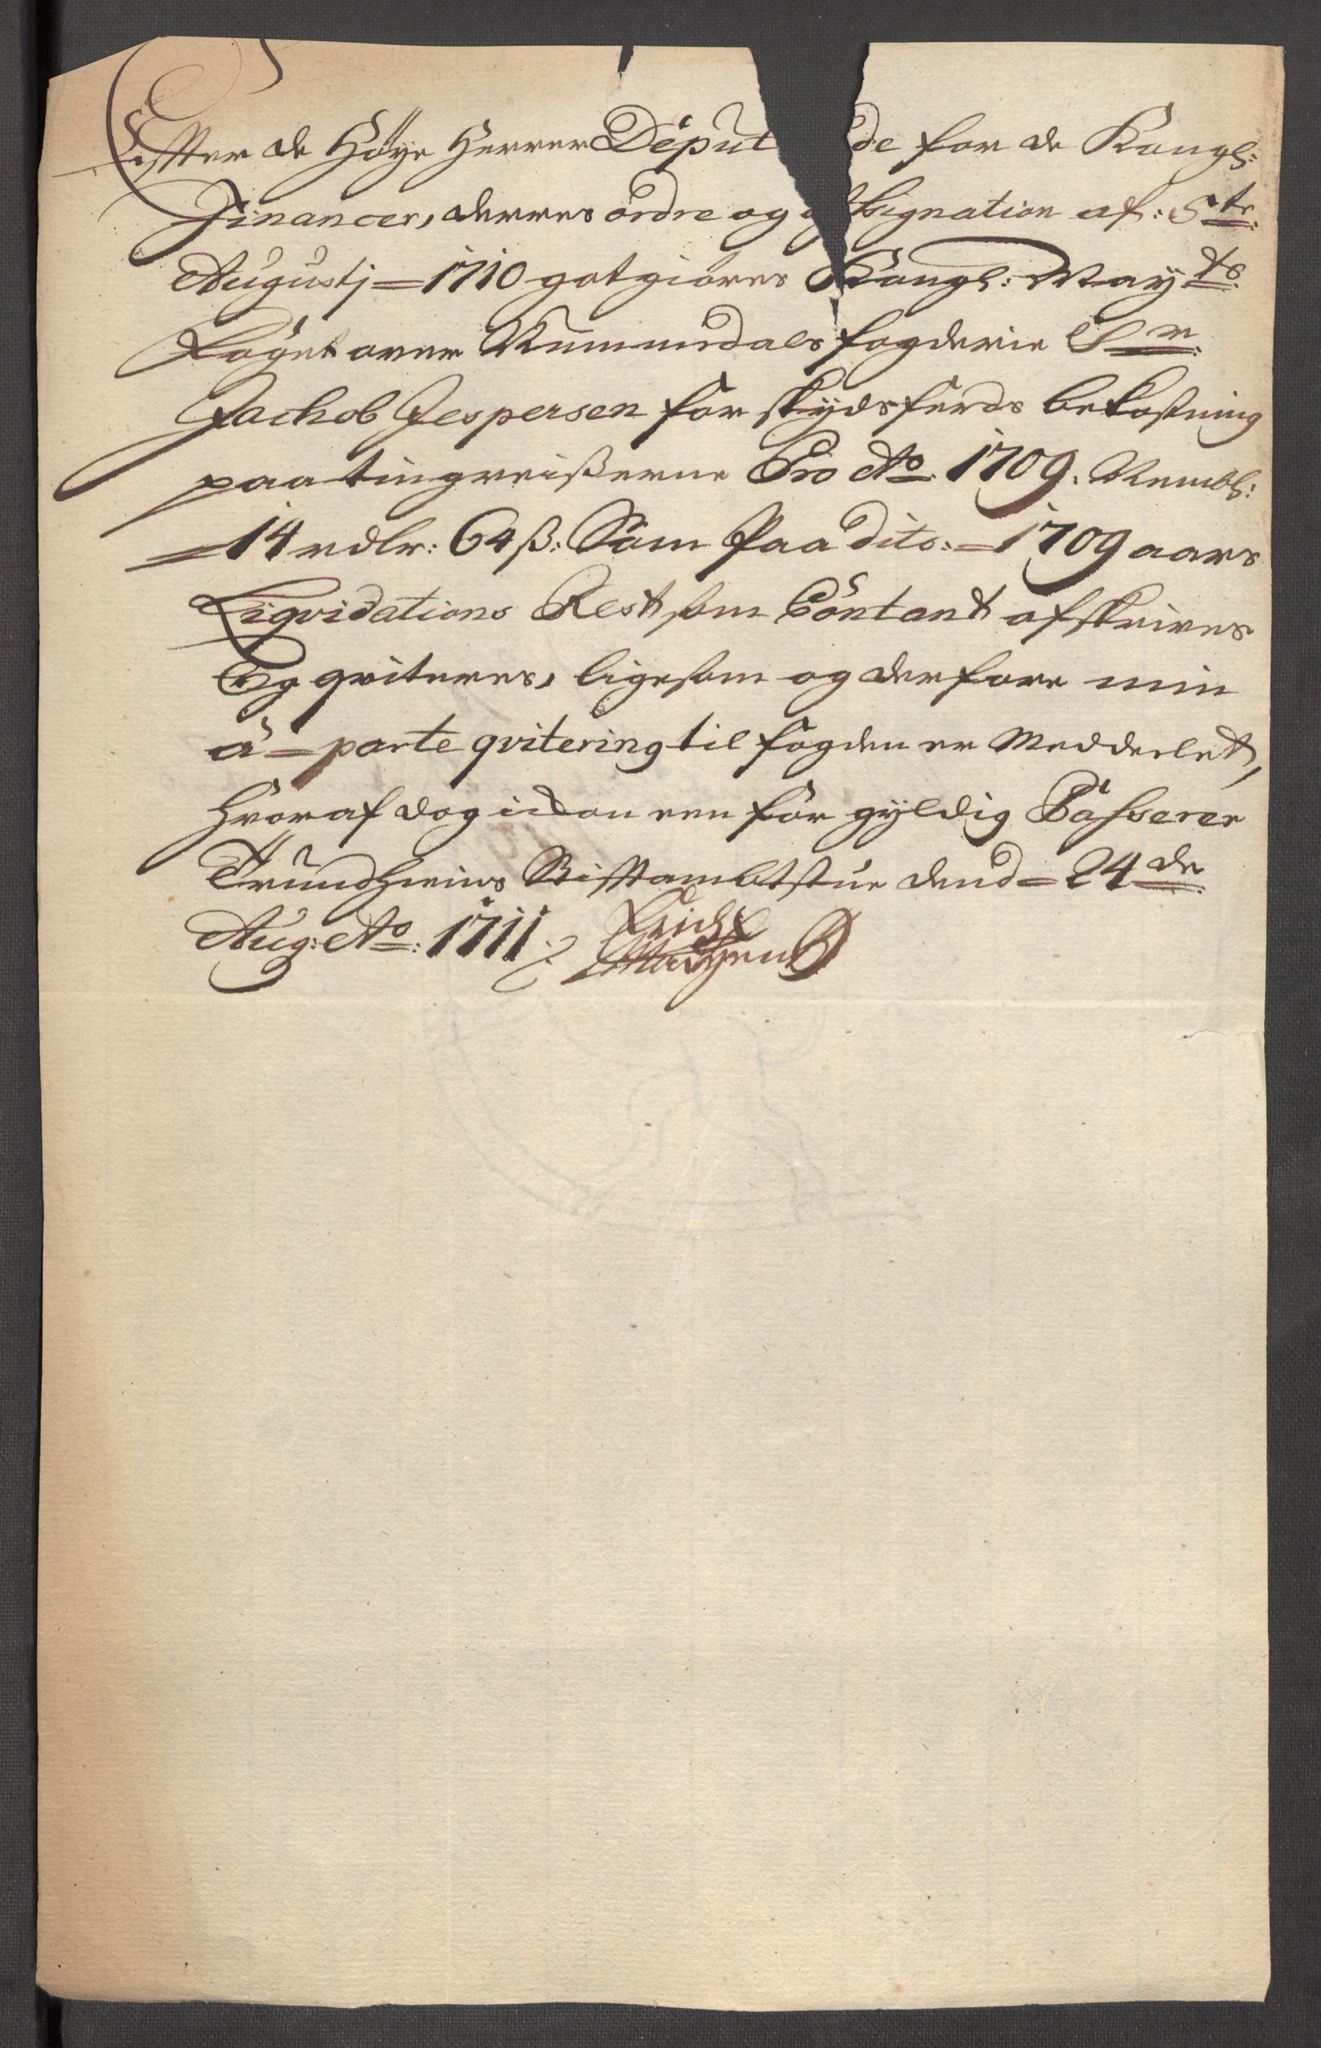 Effter de Høye Herrer Deput de for de Kongl:
Financer, derres ordre og assignation af: 5te
Augustj = 1710 gotgiøres Kongl: Mayts
Foget over Numendals fogderie Sr
Jachob Jespersen for skydsferds bekostning
paa tingreißerne Pro Ao 1709. Nembl:
= 14 rdlr: 64 ß: Som Paa dito = 1709 aars
Liqvidations Rest som Contant afskrives
Og qviteres, ligesom og derfore min
a = parte qvitering til fogden er Meddeelet,
Hvoraf dog een for gyldig Passerer
Trundhiems Stifftambtstue dend = 24de
Aug: Ao: 1711.